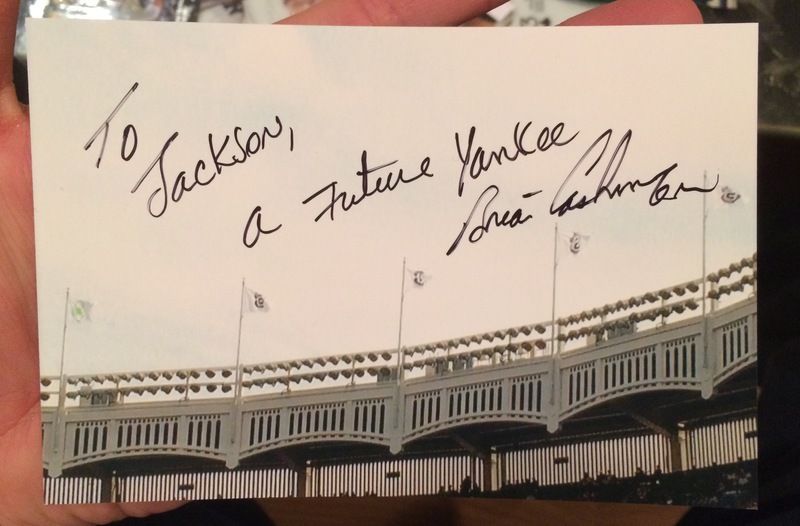 To
Jackson,
a Future Yankee
Brian Cashman